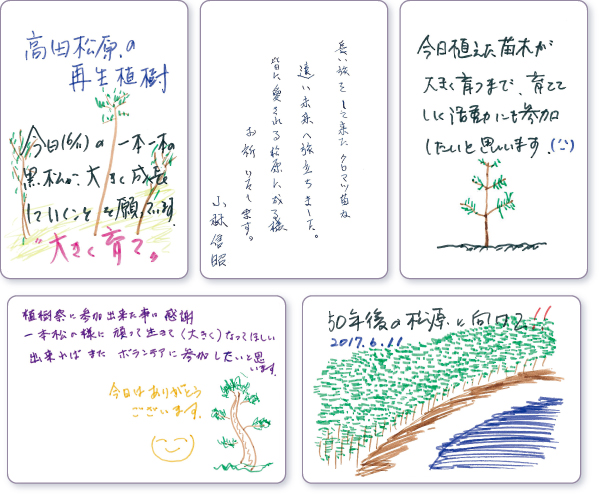 高田松原の
再生植樹
今日(6/11)の一本一本の
黒松が、大きく成長
していくことを願っています。
"大きく育て"
長い旅をして来たクロマツ苗が
遠い未来へ旅立ちました。
皆に愛される松原に成る様
お祈りいたします。
小林信昭
今日植えた苗木が
大きく育つまで、育てて
いく活動にも参加
したいと思います。
植樹祭に参加出来た事に感謝
一本松の様に頑って生きて(大きく)なってほしい
出来ればまたボランテアに参加したいと思
います。
今日はありがとう
ございます。
50年後の松原に向けて!!
2017.6.11